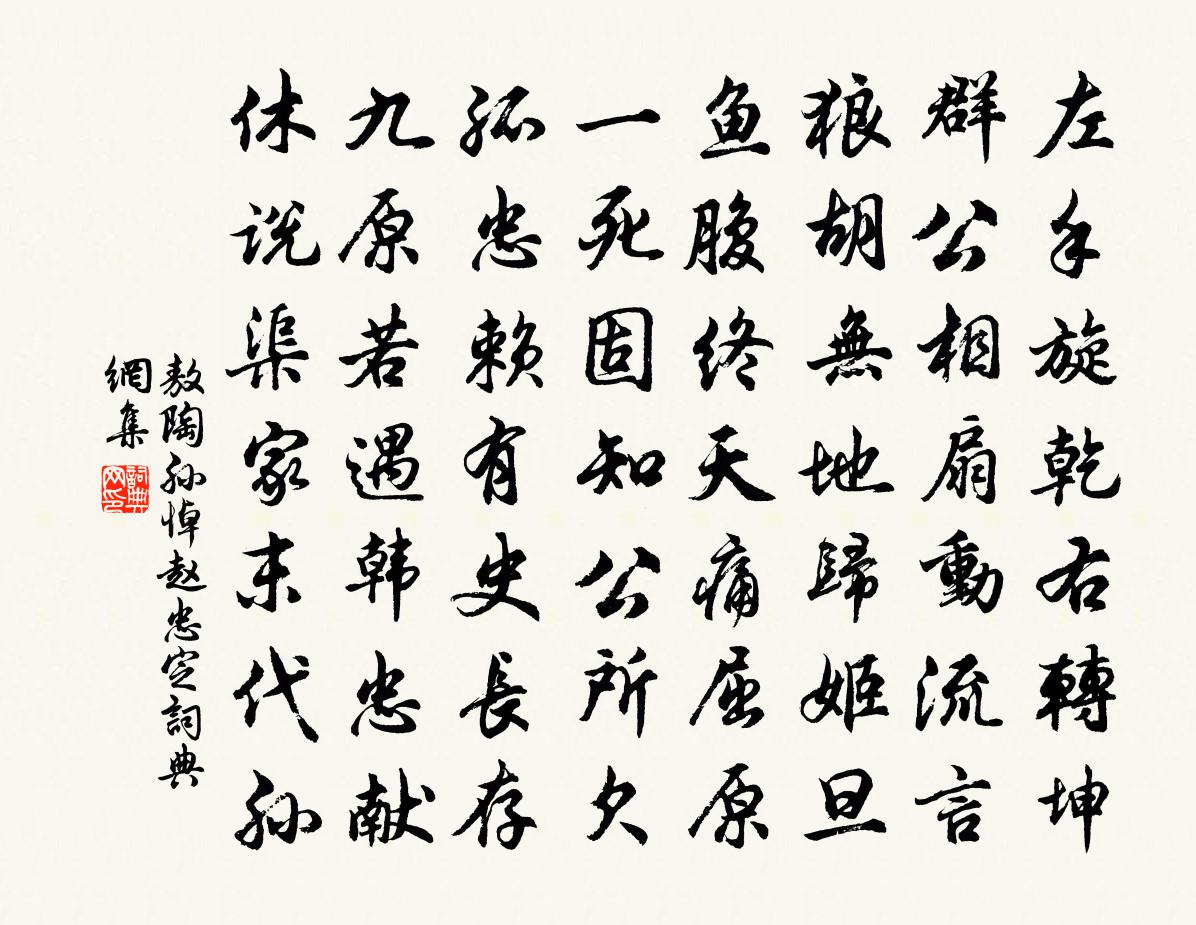 左手旋乾右轉坤
群公相扇動流言
狼胡無地歸姬旦
鱼腹终天痛屈原
一死固知公所欠
孤忠赖有史長存
九原若遇韩忠献
休说渠家末代孙
敖陶孙悼赵忠定詞典
網集
詞典
网印